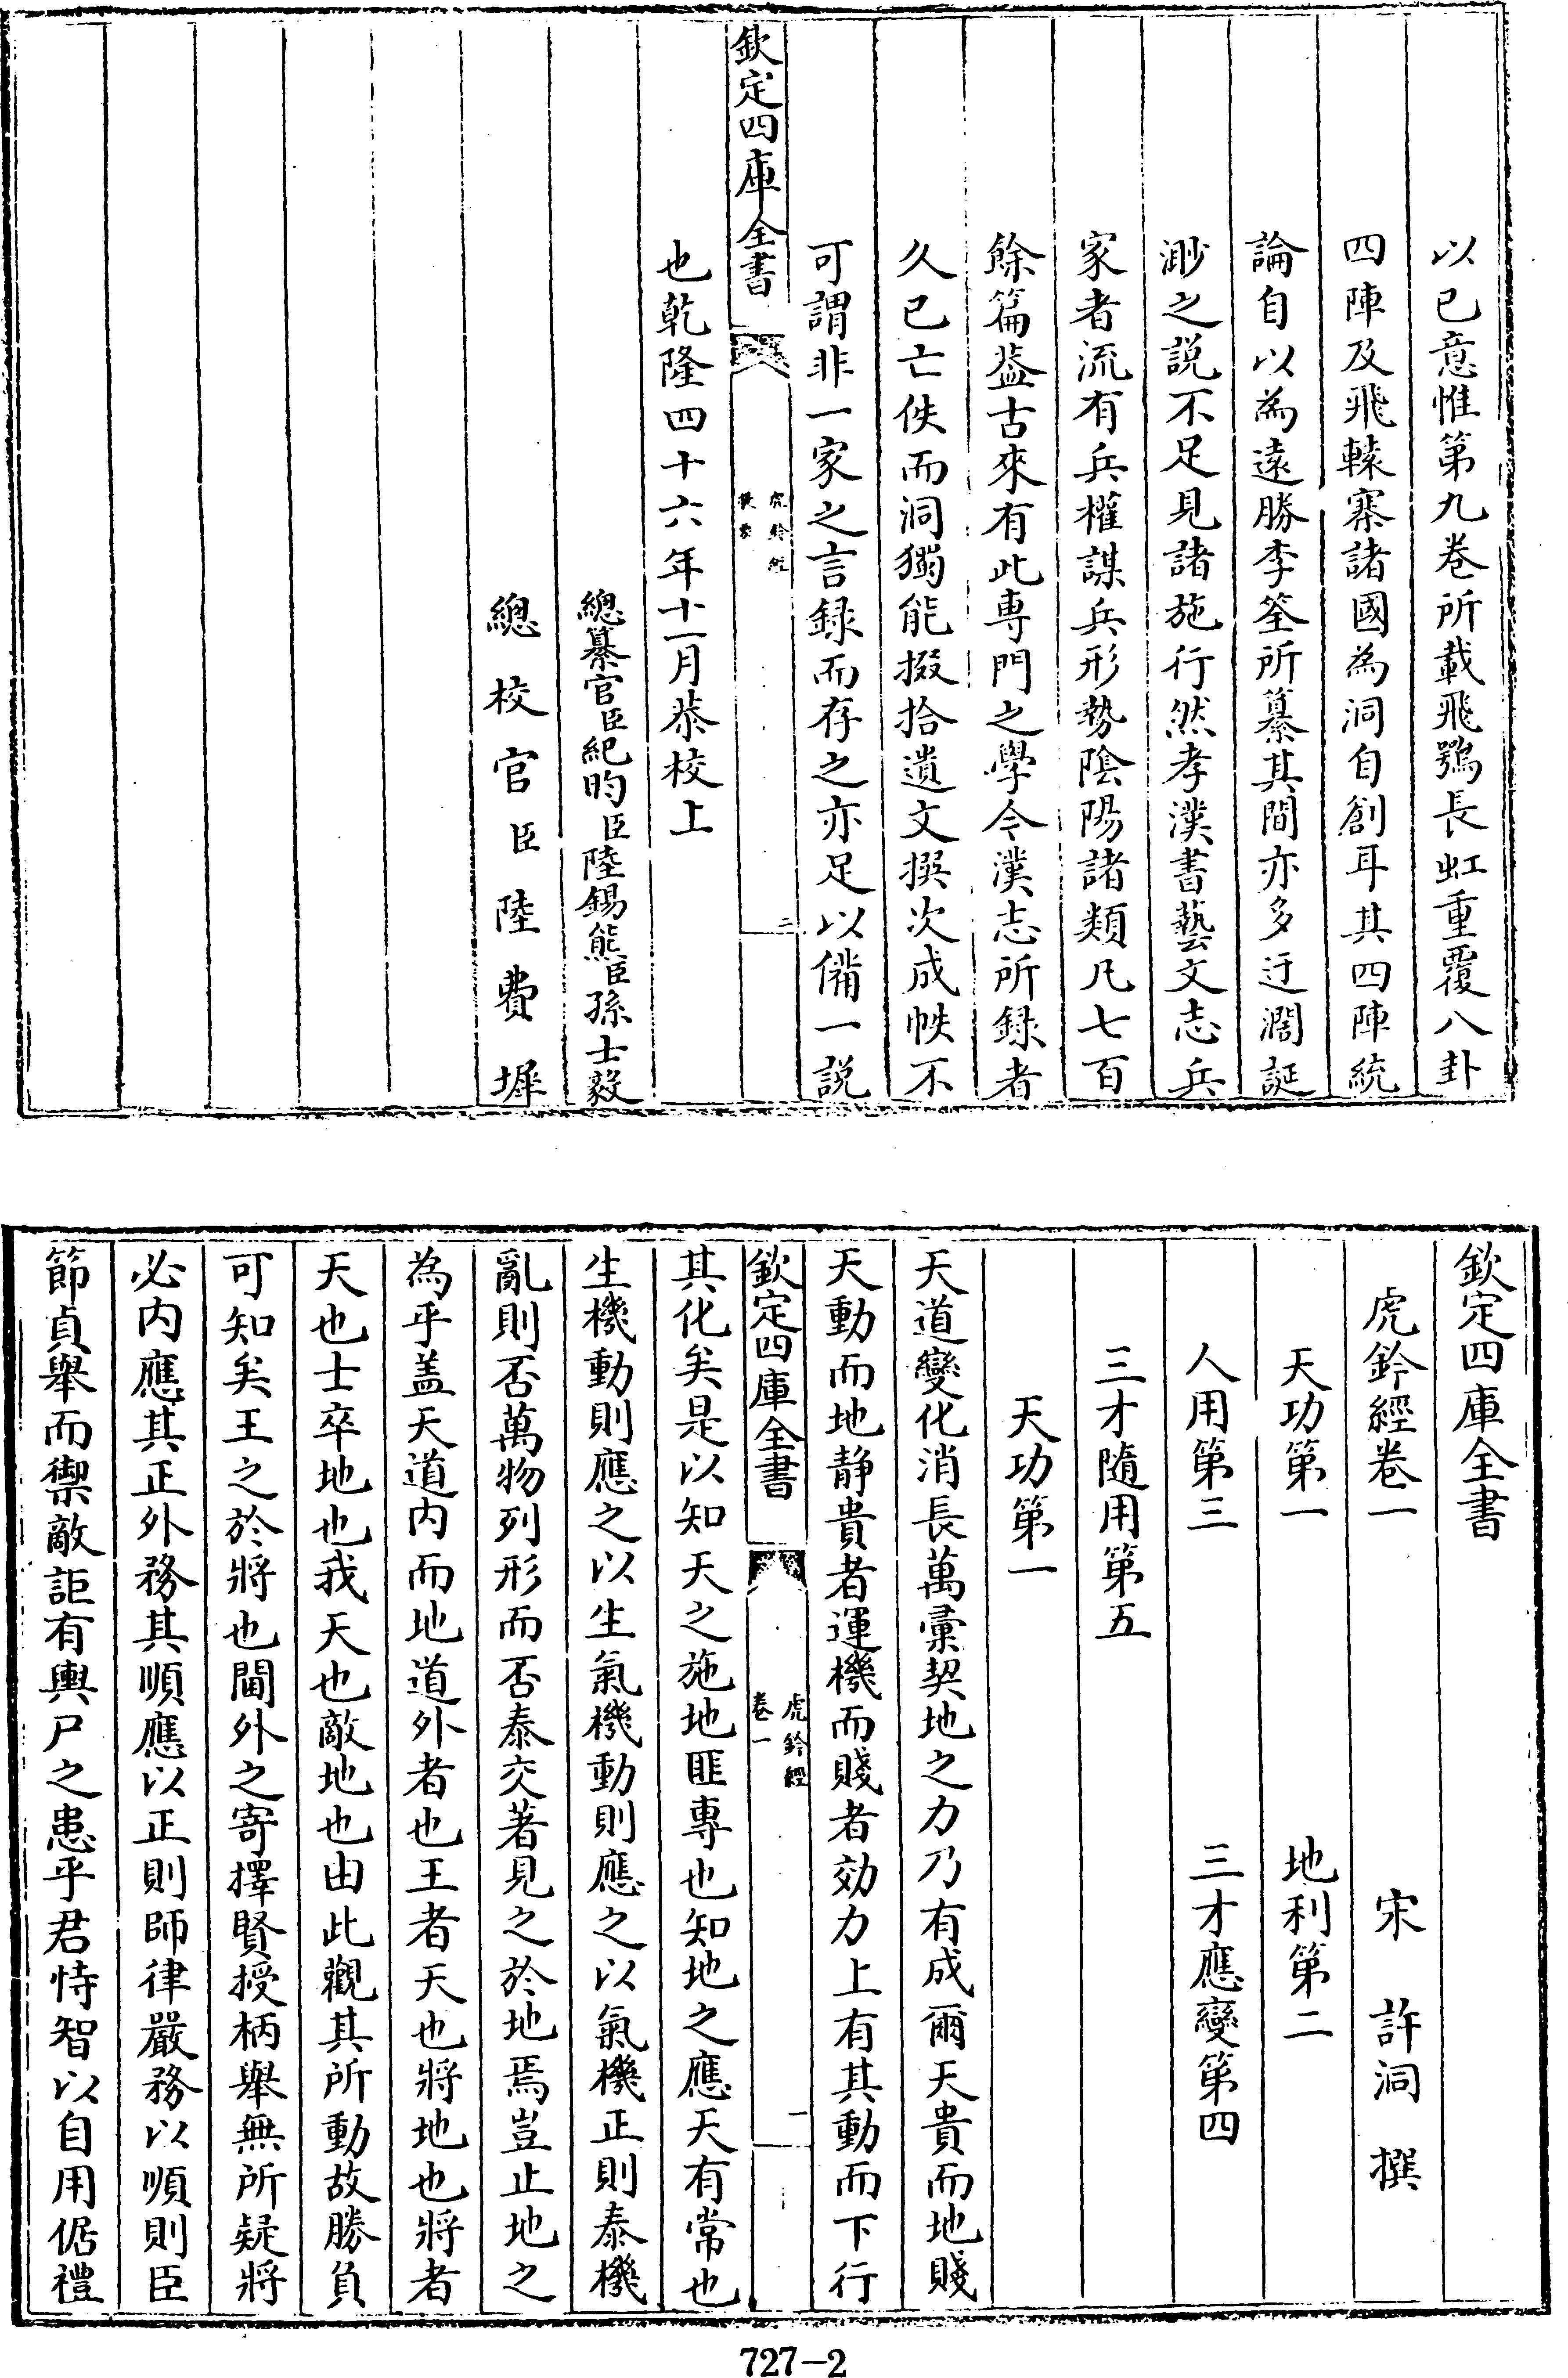 以已意惟第九卷所載飛鶚長虹重覆八卦
四陣及飛轅寨諸國為洞自創耳其四陣統
論自以為遠勝李筌所纂其間亦多迂濶誕
渺之説不足見諸施行然考漢書藝文志兵
家者流有兵權謀兵形勢陰陽諸類凡七百
餘篇葢古來有此専門之學今漢志所録者
久已亡佚而洞獨能掇拾遺文撰次成帙不
可謂非一家之言録而存之亦足以備一説
欽定四庫全書
虎鈐經
提要
二
也乾隆四十六年十一月恭校上
總纂官臣紀昀臣陸錫熊臣孫士毅
總校官臣陸費墀
欽定四庫全書
虎鈐經卷一
宋 許洞 撰
天功第一 地利第二
人用第三 三才應變第四
三才隨用第五
天功第一
天道變化消長萬彚契地之力乃有成爾天貴而地賤
天動而地静貴者運機而賤者効力上有其動而下行
欽定四庫全書
虎鈐經
卷一
一
其化矣是以知天之施地匪專也知地之應天有常也
生機動則應之以生氣機動則應之以氣機正則泰機
亂則否萬物列形而否泰交著見之於地焉豈止地之
為乎盖天道内而地道外者也王者天也將地也將者
天也士卒地也我天也敵地也由此觀其所動故勝負
可知矣王之於將也閫外之寄擇賢授柄舉無所疑將
必内應其正外務其順應以正則師律嚴務以順則臣
節貞舉而禦敵詎有輿尸之患乎君恃智以自用倨禮
727-2